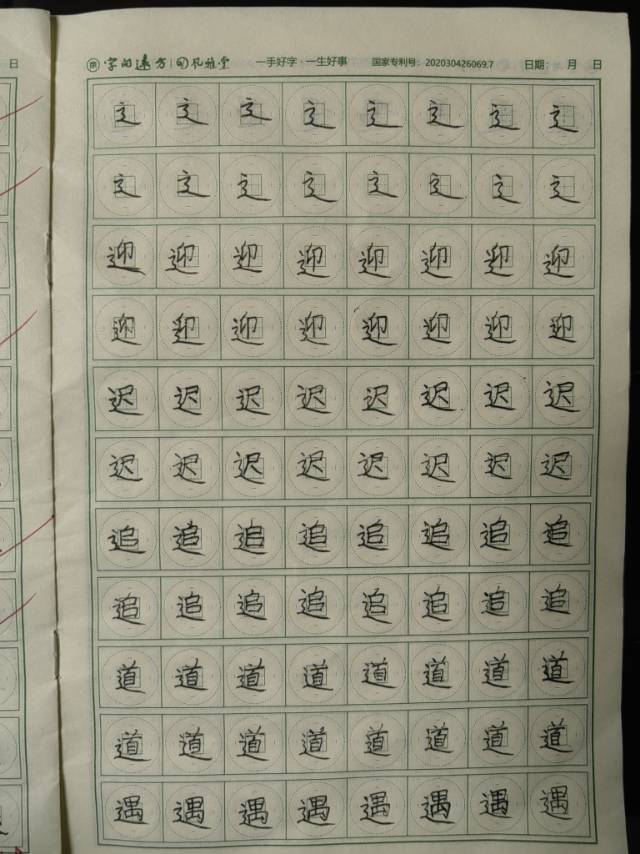 日
字的远方 句风雅堂 一手好字·一生好事 国家专利号：202030426069.7 日期： 月 日
辶 辶 辶 辶 辶 辶 辶 辶
辶 辶 辶 辶 辶 辶 辶 辶
迎 迎 迎 迎 迎 迎 迎 迎
迎 迎 迎 迎 迎 迎 迎 迎
迟 迟 迟 迟 迟 迟 迟 迟
迟 迟 迟 迟 迟 迟 迟 迟
追 追 追 追 追 追 追 追
追 追 追 追 追 追 追 追
道 道 道 道 道 道 道 道
道 道 道 道 道 道 道 道
遇 遇 遇 遇 遇 遇 遇 遇